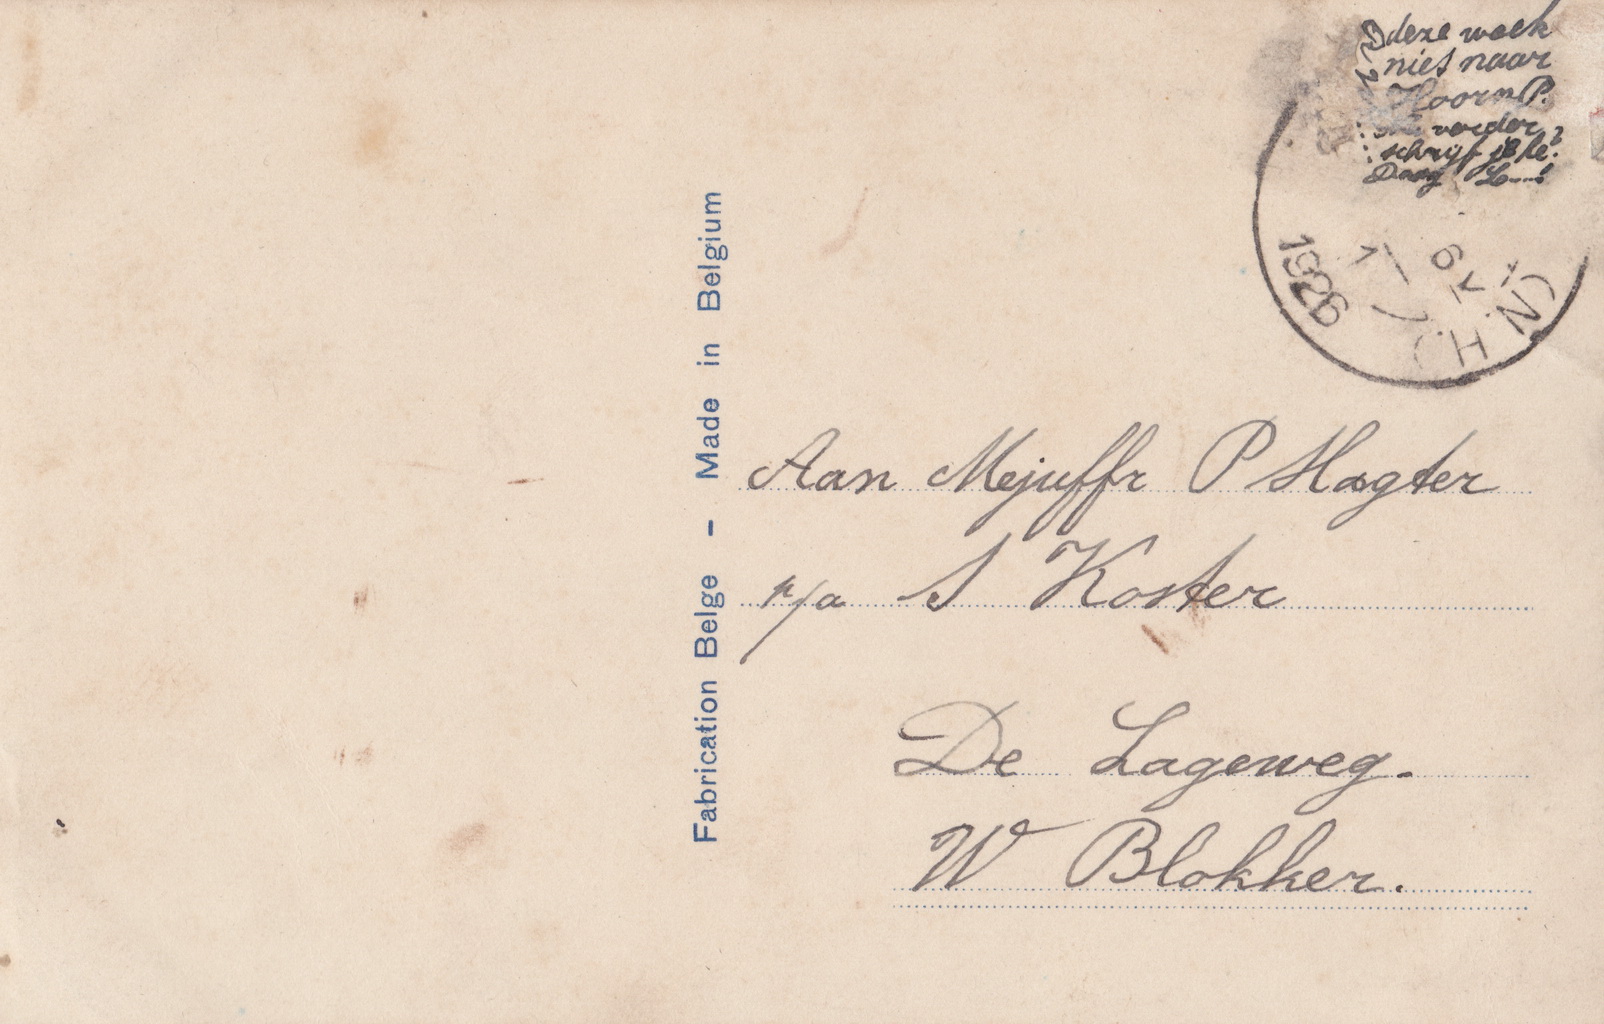 deze week
niet naar
Hoorn P.
verder
schrijf je he?
Daag L---!
1926
6 V
1
(N. H.)
Fabrication Belge - Made in Belgium
Aan Mejuffr P Hagter
p/a S Koster
De Lageweg.
W Blokker.